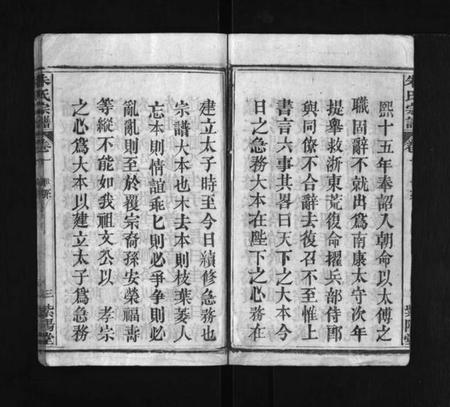 熙十五年奉詔入朝命以太傅之
職固辭不就出爲南康太守次年
提舉救浙東荒復命擢兵部侍郎
與同僚不合辭去復召不至惟上
書言六事其畧曰天下之大本今
日之急務大本在陛下之心急務在
建立太子時至今日續修急務也
宗譜大本也木去本則枝葉萎人
忘本則情誼乖乜則必爭爭則必
亂亂則至於覆宗裔孫安榮福壽
等縱不能如我祖文公以 孝宗
之心爲大本以建立太子爲急務
朱氏宗譜
卷一
三 紫陽堂